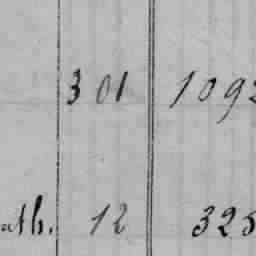 301 1092
ath. 12 325